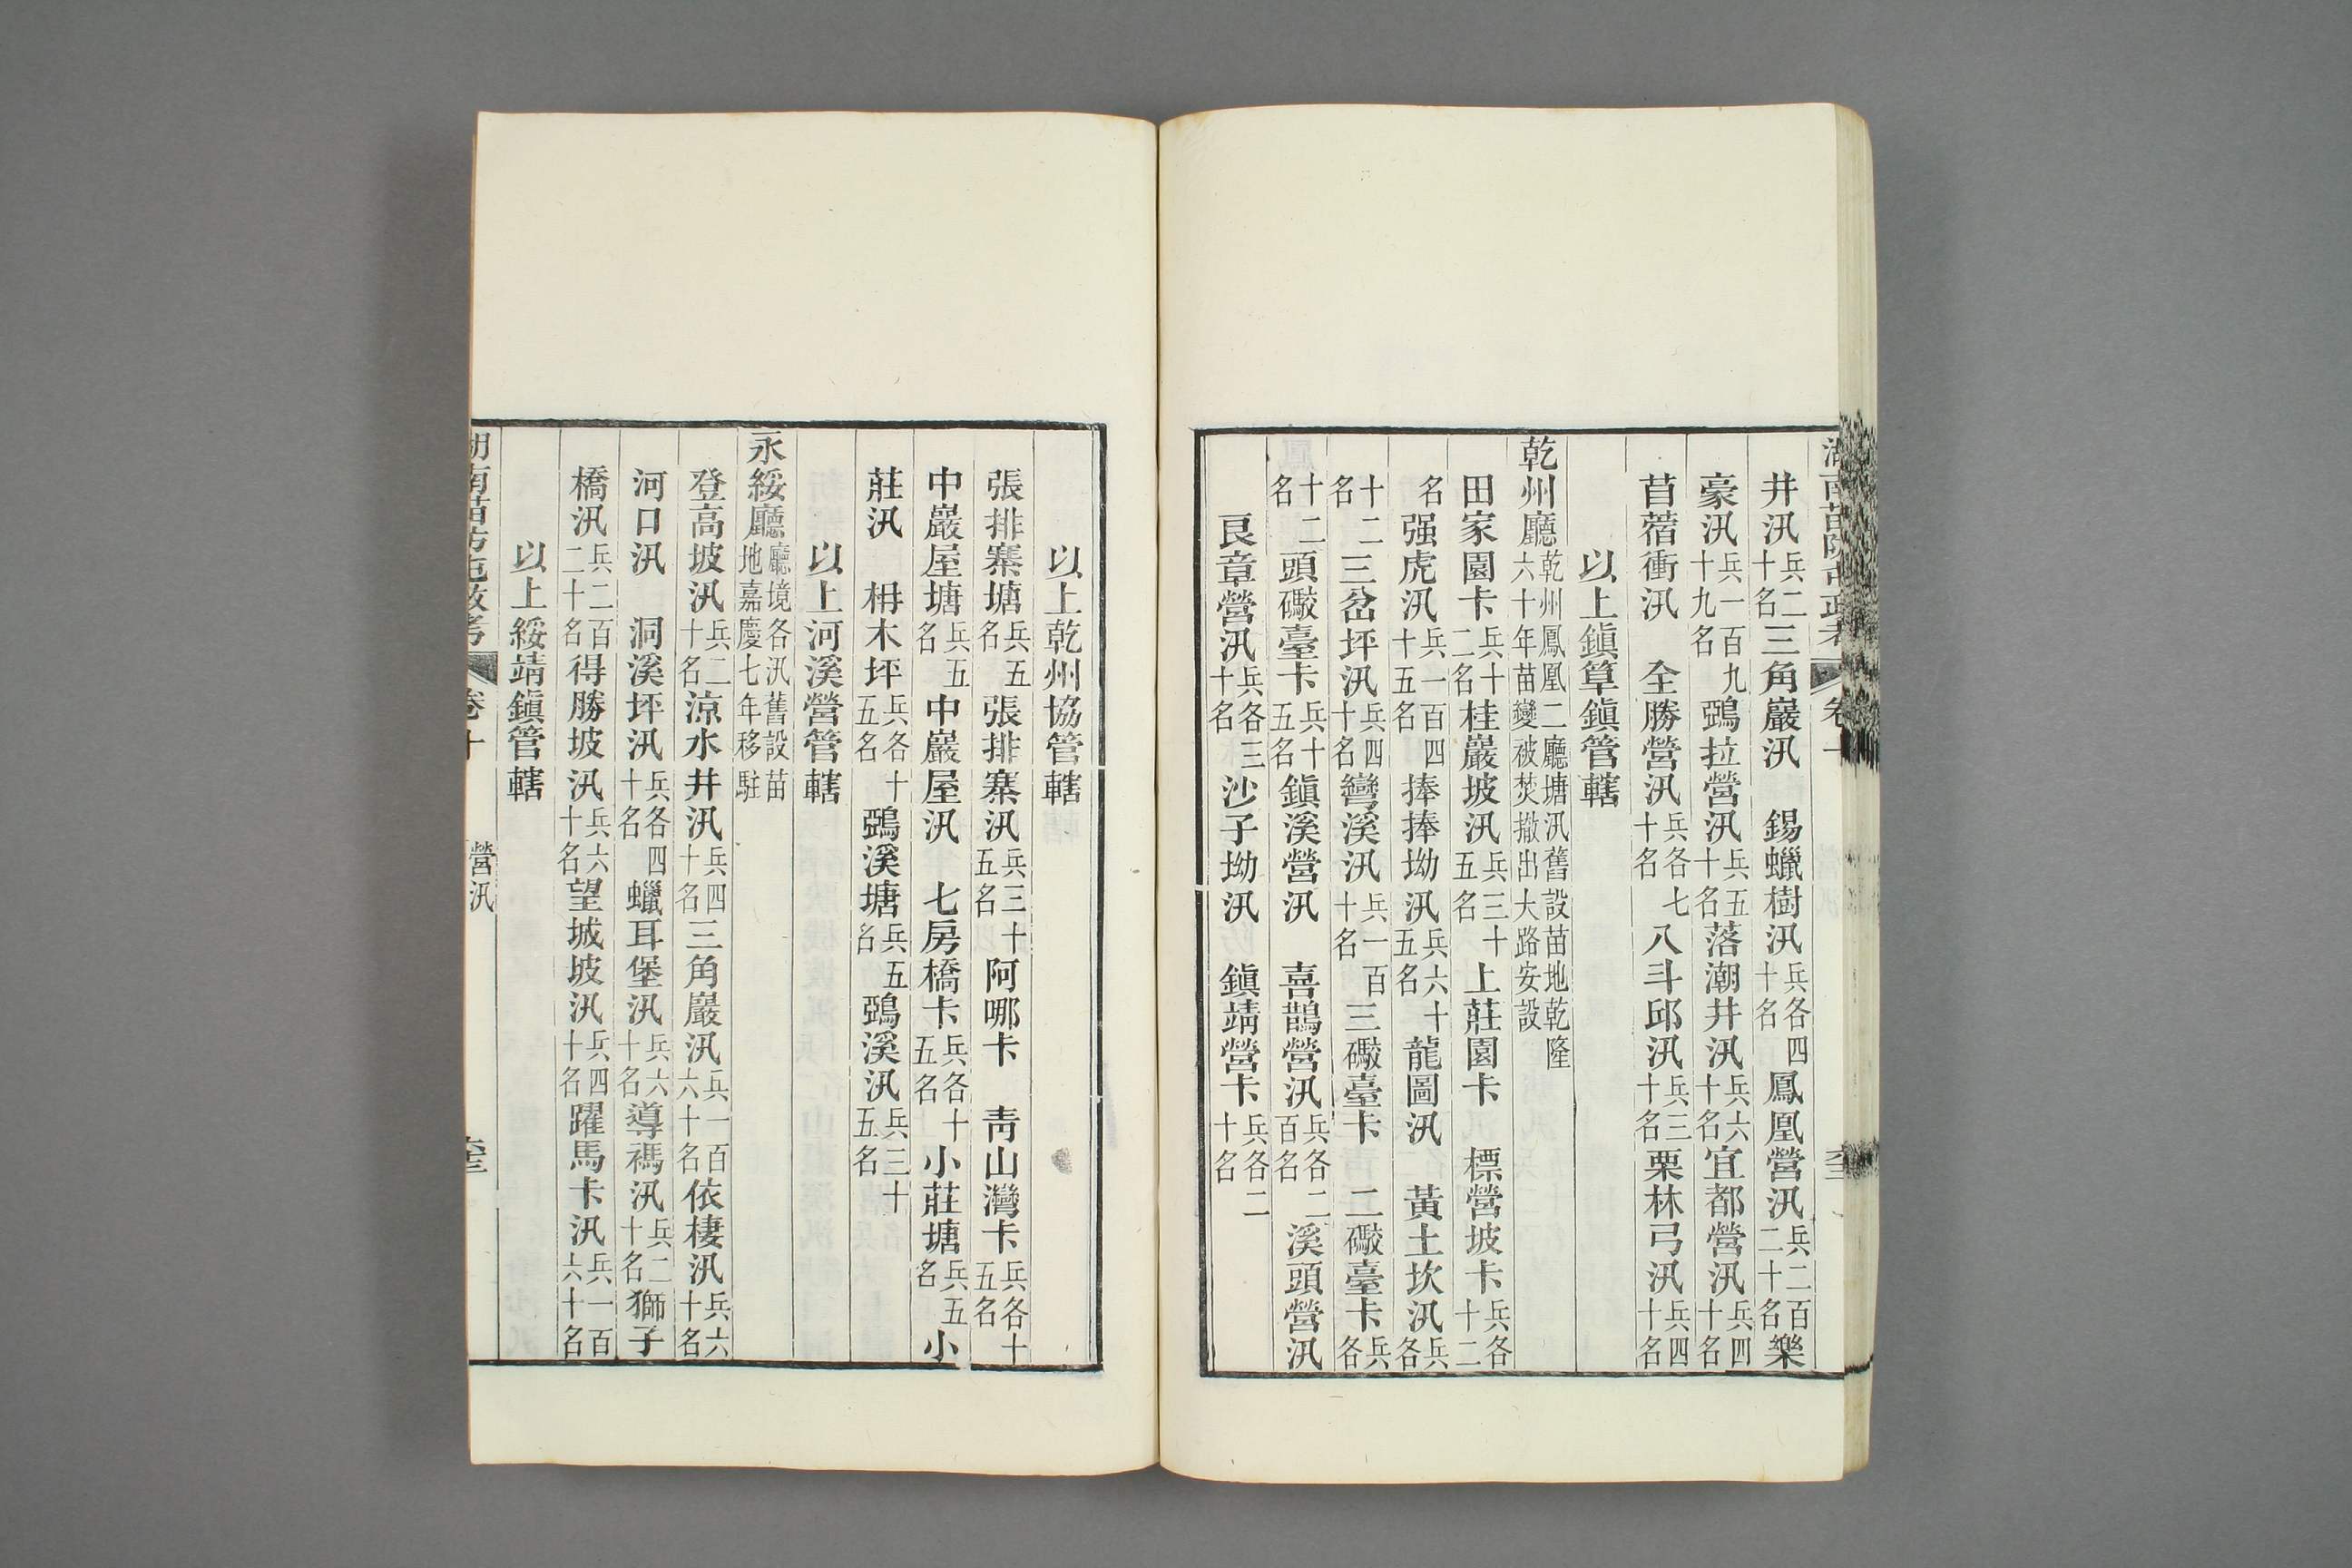 井汛兵二十名三角巖汛　錫蠟樹汛兵各四十名鳳凰營汛兵二百二十名樂
豪汛兵一百九十九名鵶拉營汛兵五十名落潮井汛兵六十名宜都營汛兵四十名
苜蓿衝汛　全勝營汛兵各七十名八斗邱汛兵三十名栗林弓汛兵四十名
以上鎭筸鎭管轄
乾州廳乾州鳳凰二廳塘汛舊設苗地乾隆六十年苗變被焚撤出大路安設
田家園卡兵十二名桂巖坡汛兵三十五名上莊園卡　標營坡卡兵各十二
名强虎汛兵一百四十五名捧捧坳汛兵六十五名龍圖汛　黃土坎汛兵各
十二名三岔坪汛兵四十名彎溪汛兵一百十名三礮臺卡　二礮臺卡兵各
十二名頭礮臺卡兵十五名鎭溪營汛　喜鵲營汛兵各二百名溪頭營汛
良章營汛兵各三十名沙子坳汛　鎭靖營卡兵各二十名
以上乾州協管轄
張排寨塘兵五名張排寨汛兵三十五名阿哪卡　靑山灣卡兵各十五名
中巖屋塘兵五名中巖屋汛　七房橋卡兵各十五名小莊塘兵五名小
莊汛　枏木坪兵各十五名鵶溪塘兵五名鵶溪汛兵三十五名
以上河溪營管轄
永綏廳廳境各汛舊設苗地嘉慶七年移駐
登高坡汛兵二十名涼水井汛兵四十名三角巖汛兵一百六十名依棲汛兵六十名
河口汛　洞溪坪汛兵各四十名蠟耳堡汛兵六十名導禡汛兵二十名獅子
橋汛兵二百二十名得勝坡汛兵六十名望城坡汛兵四十名躍馬卡汛兵一百六十名
以上綏靖鎭管轄
卷十
營汛